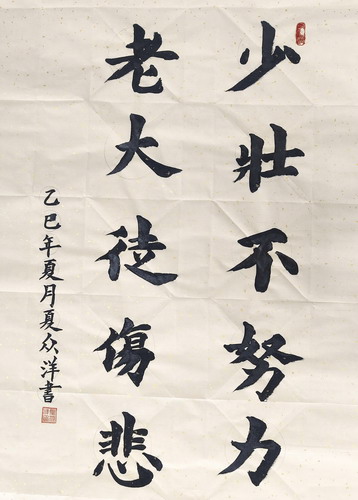 少壯不努力
老大徒傷悲
乙巳年夏月夏众洋書